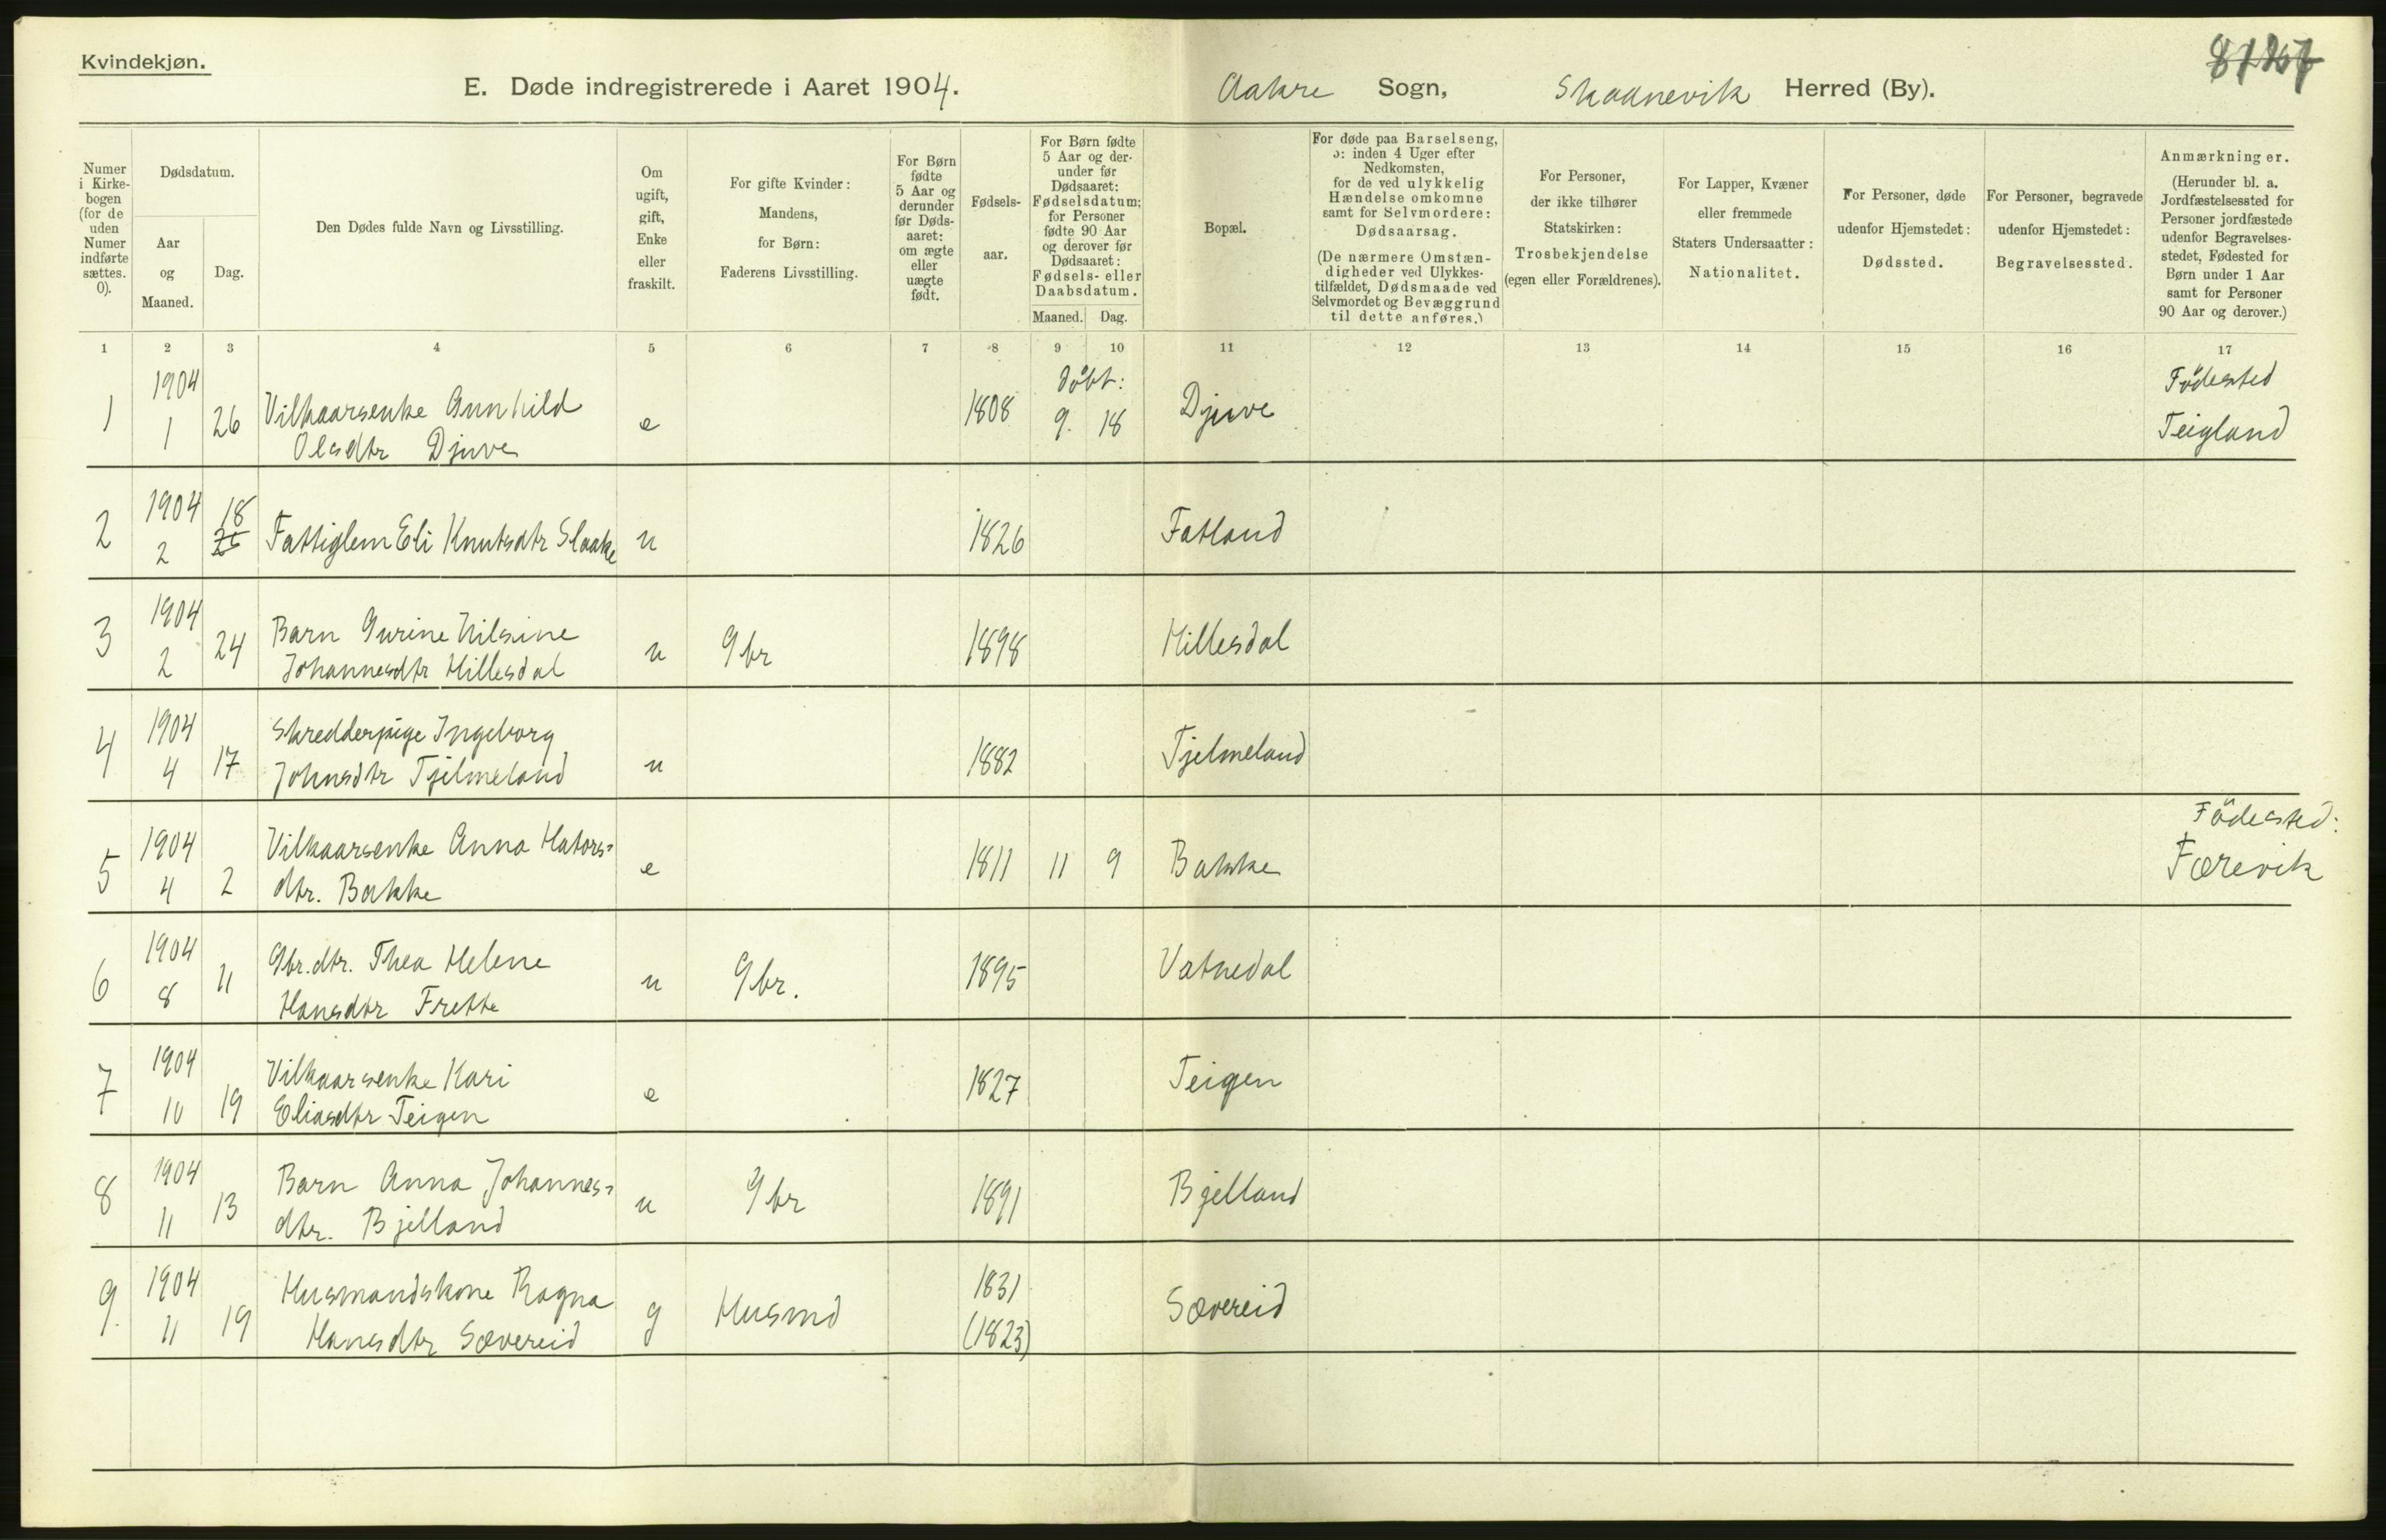 Kvindekjøn.
E. Døde indregistrerede i Aaret 1904.
Aakre Sogn, Skaanevik Herred (By).
Numer
i Kirke-
bogen
(for de
uden
Numer
indførte
sættes.
0).
Dødsdatum.
Aar
og
Maaned.
Dag.
Den Dødes fulde Navn og Livsstilling.
Om
ugift,
gift,
Enke
eller
fraskilt.
For gifte Kvinder:
Mandens,
for Børn:
Faderens Livsstilling.
For Børn
fødte
5 Aar og
derunder
før Døds-
aaret:
om ægte
eller
uægte
født.
Fødsels-
aar.
For Børn fødte
5 Aar og der-
under før
Dødsaaret:
Fødselsdatum;
for Personer
fødte 90 Aar
og derover før
Dødsaaret:
Fødsels- eller
Daabsdatum.
Maaned. Dag.
Bopæl.
For døde paa Barselseng,
ɔ: inden 4 Uger efter
Nedkomsten,
for de ved ulykkelig
Hændelse omkomne
samt for Selvmordere:
Dødsaarsag.
(De nærmere Omstæn-
digheder ved Ulykkes-
tilfældet, Dødsmaade ved
Selvmordet og Bevæggrund
til dette anføres.)
For Personer,
der ikke tilhører
Statskirken:
Trosbekjendelse
(egen eller Forældrenes).
For Lapper, Kvæner
eller fremmede
Staters Undersaatter:
Nationalitet.
For Personer, døde
udenfor Hjemstedet:
Dødssted.
For Personer, begravede
udenfor Hjemstedet:
Begravelsessted.
Anmærkninger.
(Herunder bl. a.
Jordfæstelsessted for
Personer jordfæstede
udenfor Begravelses-
stedet, Fødested for
Børn under 1 Aar
samt for Personer
90 Aar og derover.)
1 2 3 4 5 6 7 8 9 10 11 12 13 14 15 16 17
1904 døbt: Fødested
1 1 26 Vilkaarsenke Gunhild e 1808 9. 18 Djuve Teigland
Olsdtr Djuve
1904 18
2 2 Fattiglem Eli Knutsdtr Slaake u 1826 Fatland
1904
3 2 24 Barn Gurine Nilsine u Gbr 1898 Hillesdal
Johannesdtr Hillesdal
1904 Skredderpige Ingeborg
4 4 17 Johnsdtr Tjelmeland u 1882 Tjelmeland
1904 Vilkaarsenke Anna Hators- Fødested:
5 4 2 dtr. Bakke e 1811 11 9 Bakke Færevik
1904 Gbr.dtr. Thea Helene
6 8 11 Hansdtr Frette u Gbr. 1895 Vatnedal
1904 Vilkaarsenke Kari
7 10 19 Eliasdtr Teigen e 1827 Teigen
1904 Barn Anna Johannes-
8 11 13 dtr. Bjelland u Gbr 1891 Bjelland
1904 Husmandskone Ragna 1831
9. 11 19 Hansdtr Sævereid g Husmd (1823) Sævereid